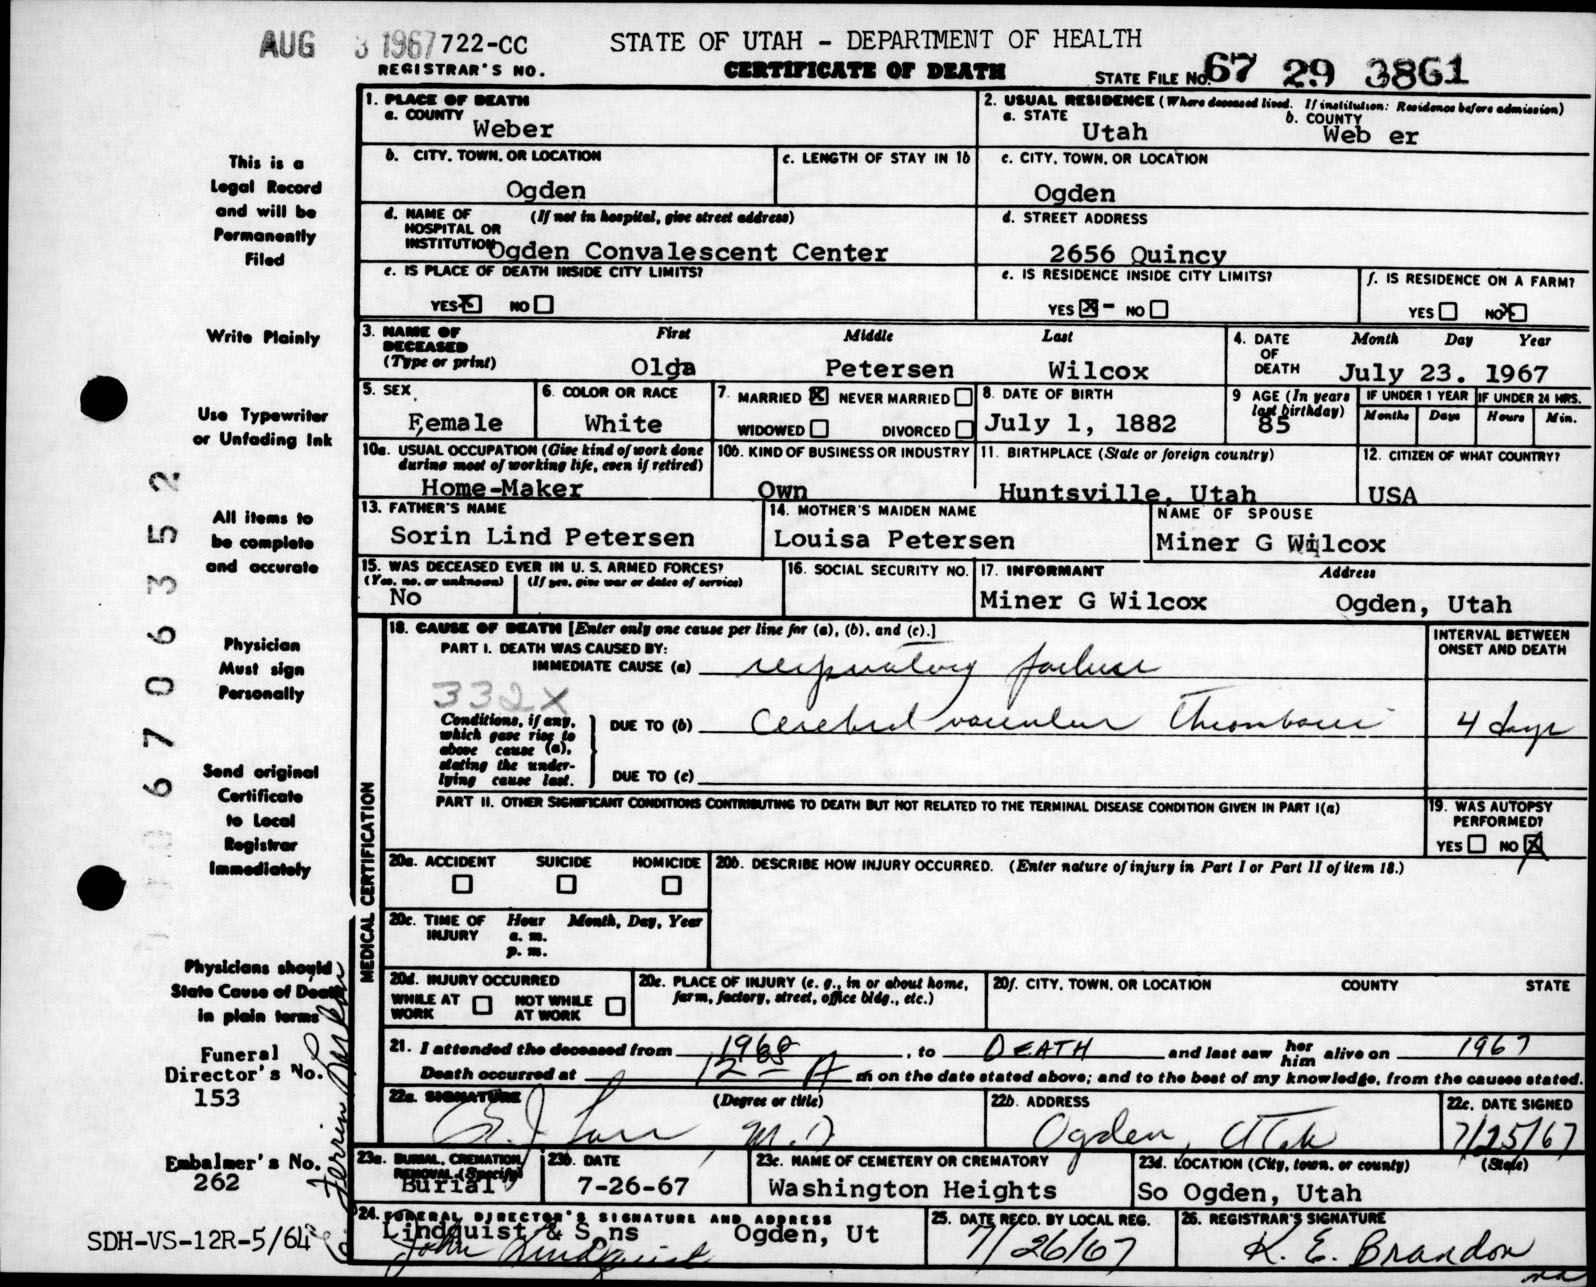 AUG 3 1967 722-CC STATE OF UTAH - DEPARTMENT OF HEALTH
REGISTRAR'S NO. CERTIFICATE OF DEATH STATE FILE NO. 67 29 3861
1. PLACE OF DEATH
a. COUNTY
Weber
2. USUAL RESIDENCE (Where deceased lived. If institution: Residence before admission)
a. STATE b. COUNTY
Utah Web er
b. CITY, TOWN, OR LOCATION c. LENGTH OF STAY IN 1b c. CITY, TOWN, OR LOCATION
Ogden Ogden
d. NAME OF (If not in hospital, give street address) d. STREET ADDRESS
HOSPITAL OR
INSTITUTION Ogden Convalescent Center 2656 Quincy
e. IS PLACE OF DEATH INSIDE CITY LIMITS? e. IS RESIDENCE INSIDE CITY LIMITS? f. IS RESIDENCE ON A FARM?
YES X NO YES X - NO YES NO X
3. NAME OF First Middle Last 4. DATE Month Day Year
DECEASED OF
(Type or print) Olga Petersen Wilcox DEATH July 23. 1967
5. SEX 6. COLOR OR RACE 7. MARRIED X NEVER MARRIED 8. DATE OF BIRTH 9 AGE (In years last birthday) IF UNDER 1 YEAR IF UNDER 24 HRS.
Months Days Hours Min.
Female White WIDOWED DIVORCED July 1, 1882 85
10a. USUAL OCCUPATION (Give kind of work done 10b. KIND OF BUSINESS OR INDUSTRY 11. BIRTHPLACE (State or foreign country) 12. CITIZEN OF WHAT COUNTRY?
during most of working life, even if retired)
Home-Maker Own Huntsville, Utah USA
13. FATHER'S NAME 14. MOTHER'S MAIDEN NAME NAME OF SPOUSE
Sorin Lind Petersen Louisa Petersen Miner G Wilcox
15. WAS DECEASED EVER IN U. S. ARMED FORCES? 16. SOCIAL SECURITY NO. 17. INFORMANT Address
(Yes, no, or unknown) (If yes, give war or dates of service)
No Miner G Wilcox Ogden, Utah
18. CAUSE OF DEATH [Enter only one cause per line for (a), (b), and (c).] INTERVAL BETWEEN
PART I. DEATH WAS CAUSED BY: ONSET AND DEATH
IMMEDIATE CAUSE (a) respiratory failure
332X
Conditions, if any, which gave rise to above cause (a), stating the underlying cause last.
DUE TO (b) Cerebral vascular Thrombosis 4 days
DUE TO (c)
PART II. OTHER SIGNIFICANT CONDITIONS CONTRIBUTING TO DEATH BUT NOT RELATED TO THE TERMINAL DISEASE CONDITION GIVEN IN PART I(a)
19. WAS AUTOPSY
PERFORMED?
YES NO X
20a. ACCIDENT SUICIDE HOMICIDE 20b. DESCRIBE HOW INJURY OCCURRED. (Enter nature of injury in Part I or Part II of item 18.)
20c. TIME OF Hour Month, Day, Year
INJURY a. m.
p. m.
20d. INJURY OCCURRED 20e. PLACE OF INJURY (e. g., in or about home, 20f. CITY, TOWN, OR LOCATION COUNTY STATE
WHILE AT WORK NOT WHILE AT WORK farm, factory, street, office bldg., etc.)
21. I attended the deceased from , to DEATH and last saw her him alive on 1967
Death occurred at A m on the date stated above; and to the best of my knowledge, from the causes stated.
22a. SIGNATURE (Degree or title) 22b. ADDRESS 22c. DATE SIGNED
M.D Ogden, Utah 7/25/67
23a. BURIAL, CREMATION, 23b. DATE 23c. NAME OF CEMETERY OR CREMATORY 23d. LOCATION (City, town, or county) (State)
REMOVAL (Specify)
Burial 7-26-67 Washington Heights So Ogden, Utah
24. FUNERAL DIRECTOR'S SIGNATURE AND ADDRESS 25. DATE RECD. BY LOCAL REG. 26. REGISTRAR'S SIGNATURE
Lindquist & Sons Ogden, Ut 7/26/67 K. E. Brandon
John Lindquist
MEDICAL CERTIFICATION
This is a
Legal Record
and will be
Permanently
Filed
Write Plainly
Use Typewriter
or Unfading Ink
All items to
be complete
and accurate
Physician
Must sign
Personally
Send original
Certificate
to Local
Registrar
Immediately
Physicians should
State Cause of Death
in plain terms
Funeral
Director's No.
153
Embalmer's No.
262
SDH-VS-12R-5/64
670 6352